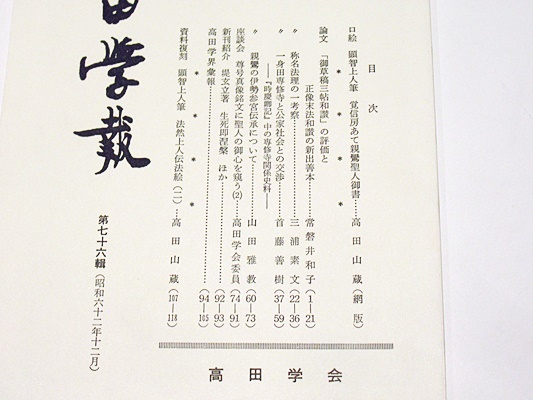 目次
口絵 顕智上人筆 覚信房あて親鸞聖人御書……高田山蔵(網版)
* * * *
論文 「御草稿三帖和讃」の評価と
正像末法和讃の新出善本……常磐井和子(1―21)
〃 称名法理の一考察……三浦素文(22―36)
〃 一身田専修寺と公家社会との交渉……首藤善樹(37―59)
――『時慶卿記』中の専修寺関係史料――
〃 親鸞の伊勢参宮伝承について……山田雅教(60―73)
座談会 尊号真像銘文に聖人の御心を窺う(2)……高田学会委員(74―91)
新刊紹介 堤玄立著 生死即涅槃 ほか……(92―93)
高田学界彙報……(94―105)
* * * *
資料復刻 顕智上人筆 法然上人伝法絵(二)……高田山蔵(107―118)
田学報
第七十六輯(昭和六十二年十二月)
高田学会